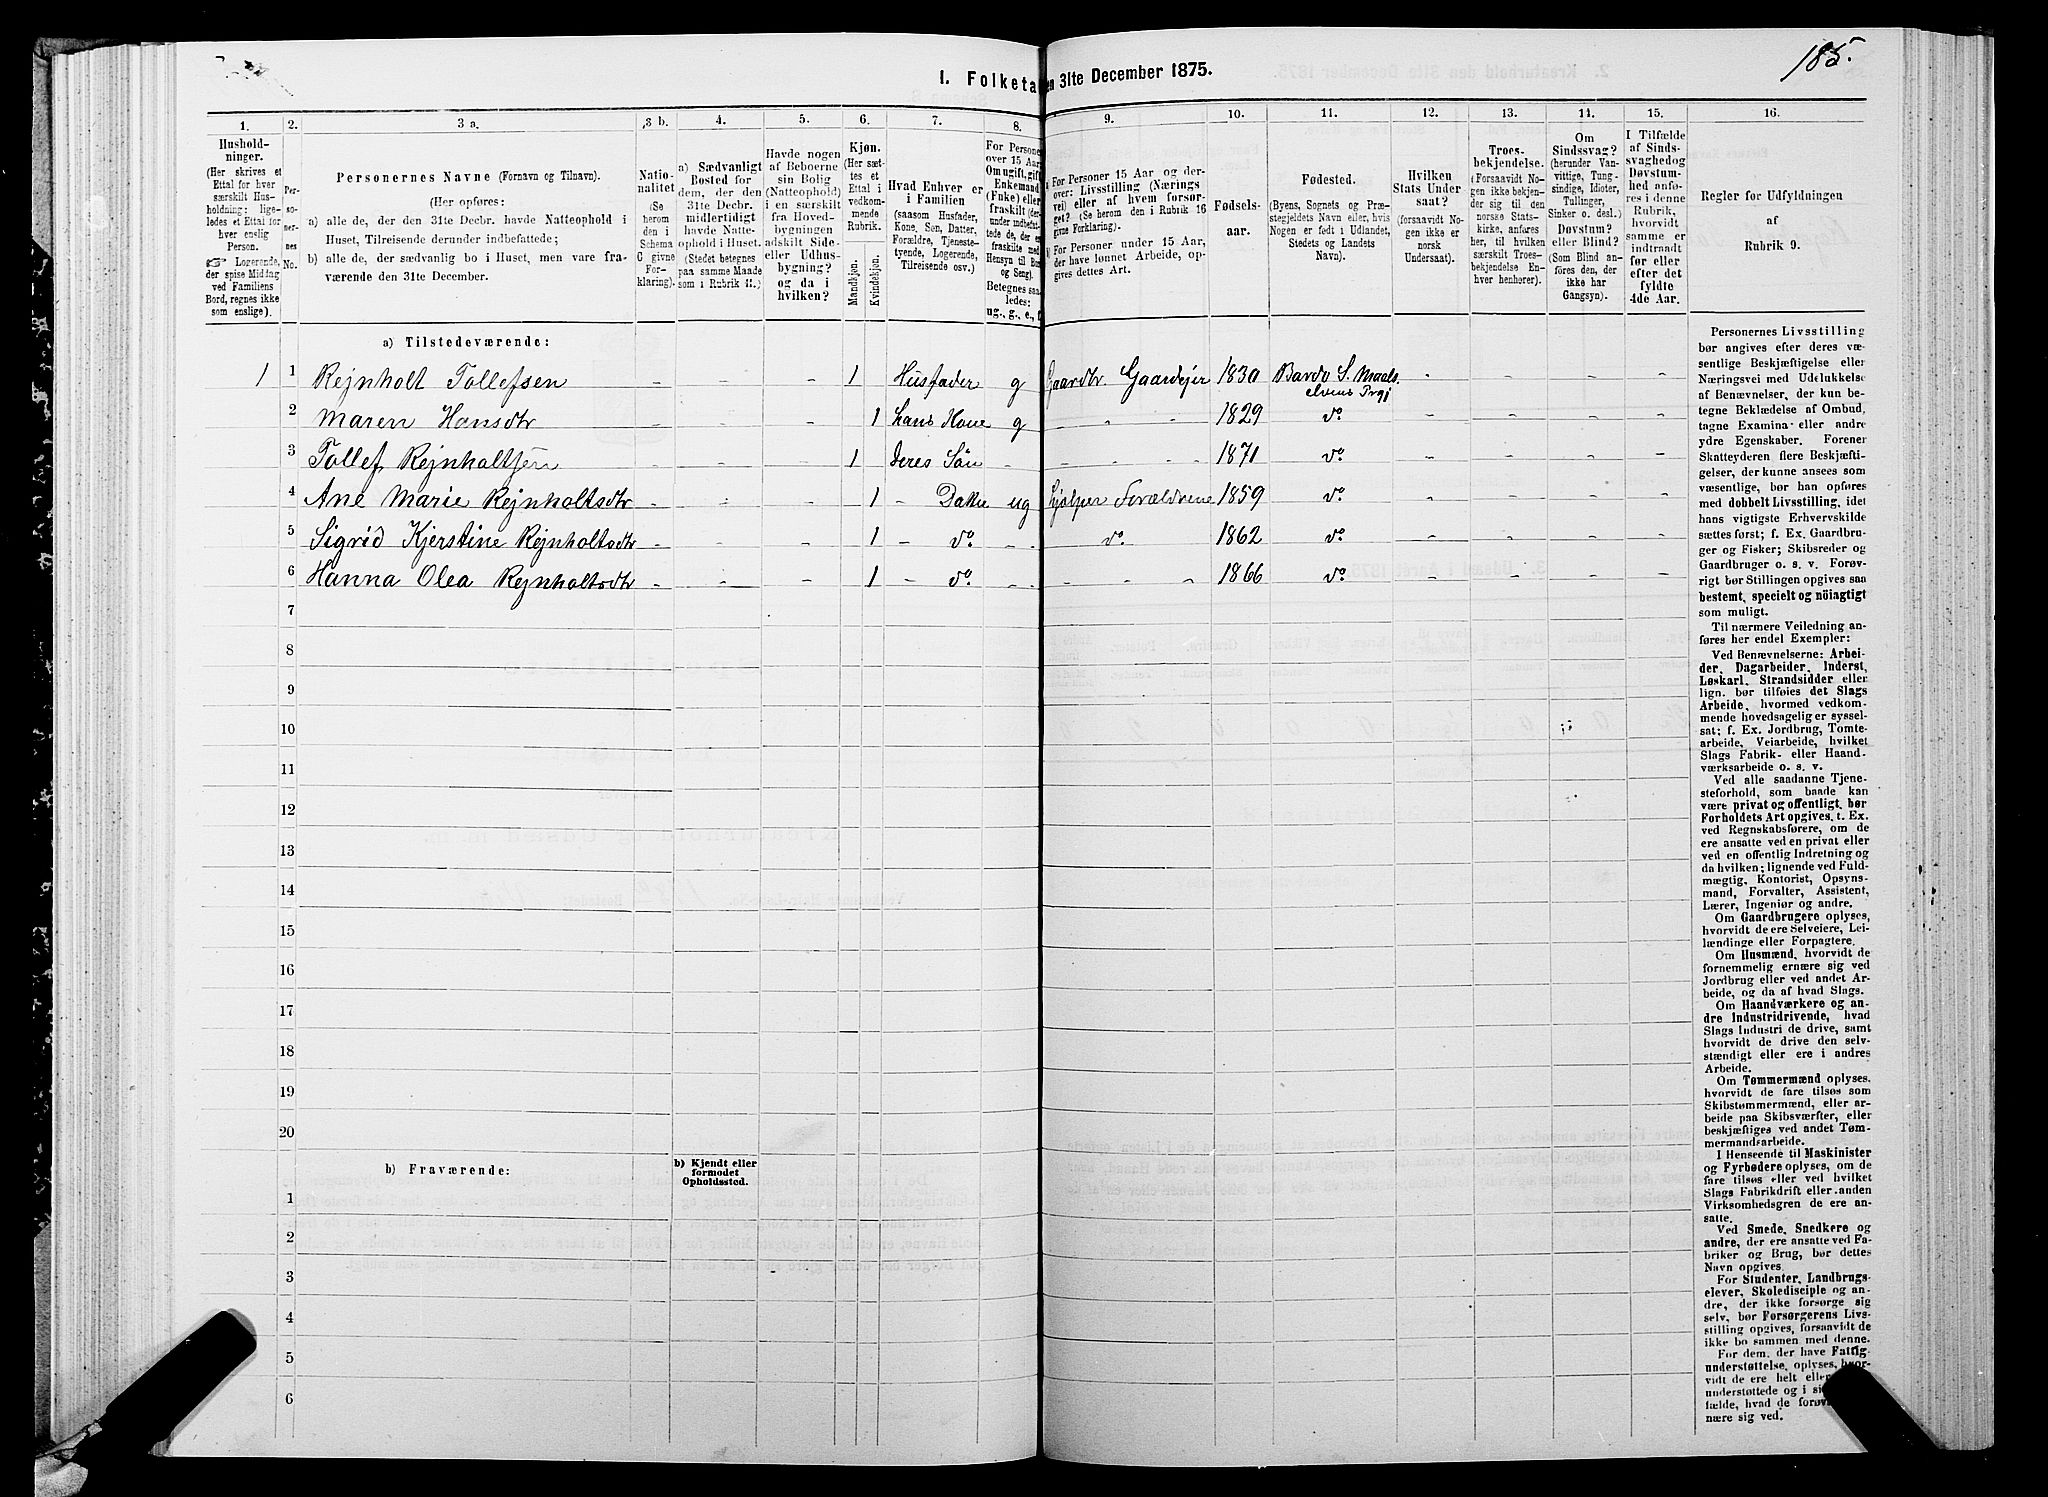 185.
1. Folketa en 31te December 1875.
1. 2. 3 a. 3 b. 4. 5. 6. 7. 8. 9. 10. 11. 12. 13. 14. 15. 16.
Hushold-
ninger.
(Her skrives et
Ettal for hver
særskilt Hus-
holdning; lige-
ledes et Ettal for
hver enslig
Person.
☞ Logerende,
der spise Middag
ved Familiens
Bord, regnes ikke
som enslige).
Per-
so-
ner-
nes
No.
Personernes Navne (Fornavn og Tilnavn).
(Her opføres:
a) alle de, der den 31te Decbr. havde Natteophold i
Huset, Tilreisende derunder indbefattede;
b) alle de, der sædvanlig bo i Huset, men vare fra-
værende den 31te December.
Natio-
nalitet
(Se
herom
den i
Schema
C givne
For-
klaring).
a) Sædvanligt
Bosted for
dem, der den
31te Decbr.
midlertidigt
havde Natte-
ophold i Huset.
(Stedet betegnes
paa samme Maade
som i Rubrik 11.)
Havde nogen
af Beboerne
sin Bolig
(Natteophold)
i en særskilt
fra Hoved-
bygningen
adskilt Side-
eller Udhus-
bygning?
og da i
hvilken?
Kjøn.
(Her sæt-
tes et
Ettal i
vedkom-
mende
Rubrik.
Mandkjøn.
Kvindekjøn.
Hvad Enhver er
i Familien
(saasom Husfader,
Kone, Søn, Datter,
Forældre, Tjeneste-
tyende, Logerende,
Tilreisende osv.)
For Personer
over 15 Aar:
Om ugift, gift,
Enkemand
(Enke) eller
fraskilt
Hensyn til Bord
og Seng).
Betegnes saa-
ledes:
ug., g., e., f.
For Personer 15 Aar og der-
over: Livsstilling (Nærings
vei) eller af hvem forsør-
get? (Se herom den i Rubrik 16
givne Forklaring).
For Personer under 15 Aar,
der have lønnet Arbeide, op-
gives dettes Art.
Fødsels-
aar.
Fødested.
(Byens, Sognets og Præ-
stegjeldets Navn eller, hvis
Nogen er født i Udlandet,
Stedets og Landets
Navn).
Hvilken
Stats Under
saat?
(forsaavidt No-
gen ikke er
norsk
Undersaat).
Troes-
bekjendelse.
(Forsaavidt No-
gen ikke bekjen-
der sig til den
norske Stats-
kirke, anføres
her, til hvilken
særskilt Troes-
bekjendelse En-
hver henhører).
Om
Sindssvag?
(herunder Van-
vittige, Tung-
sindige, Idioter,
Tullinger,
Sinker o. desl.)
Døvstum?
eller Blind?
(Som Blind an-
føres den, der
ikke har
Gangsyn).
I Tilfælde
af Sinds-
svaghed og
Døvstum-
hed anfø-
res i denne
Rubrik,
hvorvidt
samme er
indtraadt
før eller
efter det
fyldte
4de Aar.
Regler for Udfyldningen
af
Rubrik 9.
a) Tilstedeværende:
1 1 Rejnholt Tollefsen - - - 1 Husfader g Gaardbr. Gaardejer 1830 Bardo S. Maals
elvens Prgj - - - -
2 Maren Hansdtr - - - 1 hans Kone g - " - 1829 do - - - -
3 Tollef Rejnholtsen - - - 1 deres Søn - - - - 1871 do - - - -
4 Ane Marie Rejnholtsdtr - - - 1 - Datter ug hjælper Forældrene 1859 do - - - -
5 Sigrid Kjerstine Rejnholtsdtr - - - 1 - do - - do 1862 do - - - -
6 Hanna Olea Rejnholtsdtr - - - 1 - do - - - - - 1866 do - - - -
7
8
9
10
11
12
13
14
15
16
17
18
19
20
b) Fraværende:
b) Kjendt eller
formodet
Opholdssted.
1
2
3
4
5
6
Personernes Livsstilling
bør angives efter deres væ-
sentlige Beskjæftigelse eller
Næringsvei med Udelukkelse
af Benævnelser, der kun be-
tegne Beklædelse af Ombud,
tagne Examina eller andre
ydre Egenskaber. Forener
Skatteyderen flere Beskjæfti-
gelser, der kunne ansees som
væsentlige, bør han opføres
med dobbelt Livsstilling, idet
hans vigtigste Erhvervskilde
sættes først; f. Ex. Gaardbru-
ger og Fisker; Skibsreder og
Gaardbruger o. s. v. Forøv-
rigt bør Stillingen opgives saa
bestemt, specielt og nöiagtigt
som muligt.
Til nærmere Veiledning an-
føres her endel Exempler:
Ved Benævnelserne: Arbei-
der, Dagarbeider, Inderst,
Løskarl, Strandsidder eller
lign. bør tilføies det Slags
Arbeide, hvormed vedkom-
mende hovedsagelig er syssel-
sat; f. Ex. Jordbrug, Tomte-
arbeide, Veiarbeide, hvilket
Slags Fabrik- eller Haand-
værksarbeide o. s. v.
Ved alle saadanne Tjene-
steforhold, som baade kan
være privat og offentligt, bør
Forholdets Art opgives, t. Ex.
ved Regnskabsførere, om de
ere ansatte ved en privat eller
ved en offentlig Indretning og
da hvilken; lignende ved Fuld-
mægtig, Kontorist, Opsyns-
mand, Forvalter, Assistent,
Lærer, Ingeniør og andre.
Om Gaardbrugere oplyses,
hvorvidt de ere Selveiere, Lei-
lændinge eller Forpagtere.
Om Husmænd, hvorvidt de
fornemmelig ernære sig ved
Jordbrug eller ved andet Ar-
beide, og da af hvad Slags.
Om Haandværkere og an-
dre Industridrivende, hvad
Slags Industri de drive, samt
hvorvidt de drive den selv-
stændigt eller ere i andres
Arbeide.
Om Tømmermænd oplyses,
hvorvidt de fare tilsøs som
Skibstømmermænd, eller ar-
beide paa Skibsværfter, eller
beskjæftiges ved andet Tøm-
mermandsarbeide.
I Henseende til Maskinister
og Fyrbødere oplyses, om de
fare tilsøs eller ved hvilket
Slags Fabrikdrift eller anden
Virksomhedsgren de ere an-
satte.
Ved Smede, Snedkere og
andre, der ere ansatte ved Fa-
briker og Brug, bør dettes
Navn opgives.
For Studenter, Landbrugs-
elever, Skoledisciple og an-
dre, der ikke forsørge sig
selv, bør Forsørgerens Livs-
stilling opgives, forsaavidt de
ikke bo sammen med denne.
For dem, der have Fattig-
understøttelse, oplyses, hvor-
vidt de ere helt eller
understøttede og i
fælde, hvad de
nære sig ved.